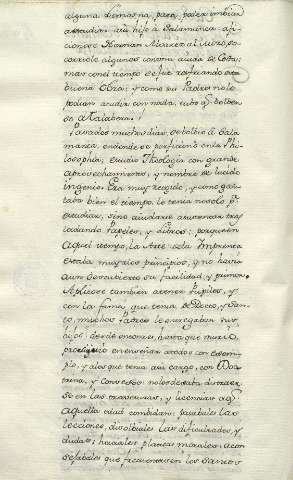 alguna demasia, para poder embiar
a estudiar a su hijo a Salamanca. afi-
cionose Hernan Alvarez al Jurò, so-
corriole algunos con su ayuda de Costa;
mas con el tiempo se fue resfriando esta
buena Obra; y como su Padre no le
podian acudir con nada, tubo q. bolber
a Talabera.
Pasados muchos dias, se bolbio a Sala
manca, endonde se perficionò en la Phi-
losophia, estudio Theologia con grande
aprovechamiento, y nombre de lucido
ingenio. Era muy recogido, y como gas-
taba bien el tiempo le tenia no solo p.ª
estudiar, sino ayudarse a sustentar tras
ladando Papeles, y Libros; porque en
aquel tiempo, la Arte de la Imprenta
estaba muy a los principios, y no havia
aun descubierto su facilidad, y primor.
Aplicose tambien a tener Pupilos, y
con la fama que tenia de Docto, y San-
to, muchos Padres le entregaban sus
hijos: desde entonces, hasta que murió,
prosiguió en enseñar a todos con exem-
plo, y a los que tenia a su cargo, con Doc-
trina, y consejo: no les dexaba distraer
se en las travesuras, y licencias a q.
aquella edad combidan: pasabales las
lecciones, disolbiales las dificultades, y
dudas: haciales platicas morales: acon
sejabales que frecuentasen los Sacra-